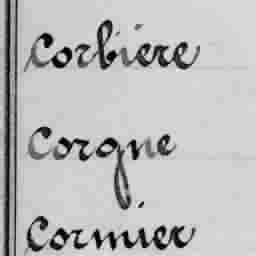 Corbiere
Corgne
Cormier